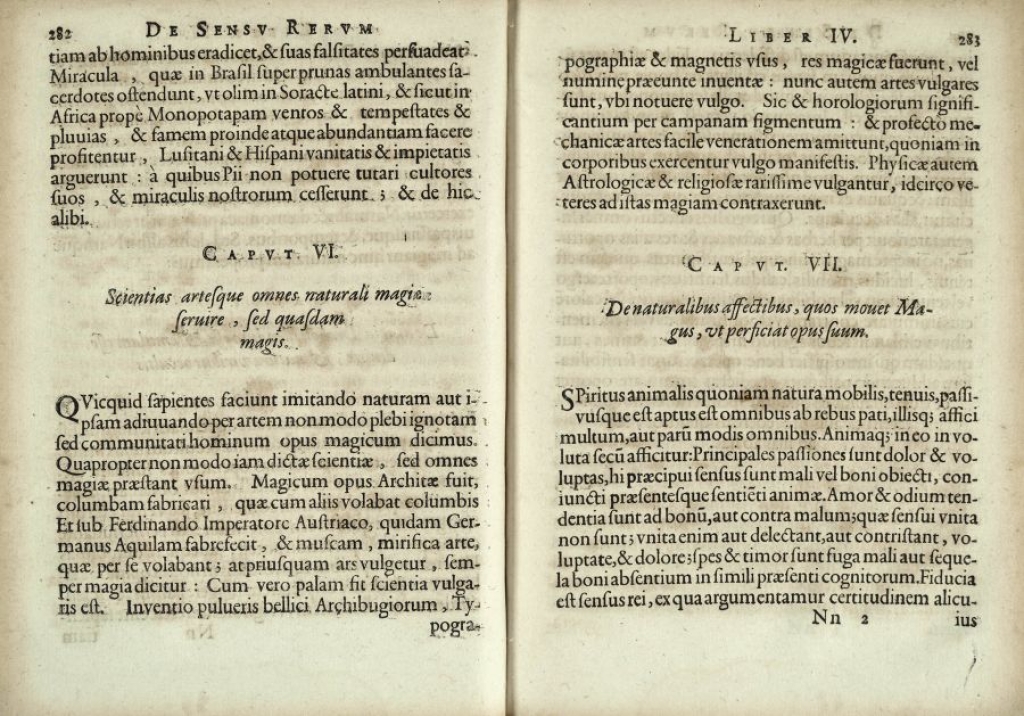 282 DE SENSV RERVM
tiam ab hominibus eradicet, & suas falsitates persuadeat.
Miracula , quæ in Brasil super prunas ambulantes sa-
cerdotes ostendunt, vt olim in Soracte latini, & sicut in
Africa propè Monopotapam ventos & tempestates &
pluuias , & famem proinde atque abundantiam facere
profitentur , Lusitani & Hispani vanitatis & impietatis
arguerunt : à quibus Pii non potuere tutari cultores
suos , & miraculis nostrorum cesserunt. ; & de hic
alibi.
CAPVT VI.
Scientias artesque omnes naturali magiæ
seruire , sed quasdam
magis.
QVicquid sapientes faciunt imitando naturam aut i-
psam adiuuando per artem non modo plebi ignotam
sed communitati hominum opus magicum dicimus.
Quapropter non modo iam dictæ scientiæ , sed omnes
magiæ præstant vsum. Magicum opus Architæ fuit,
columbam fabricari , quæ cum aliis volabat columbis
Et sub Ferdinando Imperatore Austriaco, quidam Ger-
manus Aquilam fabrefecit , & muscam , mirifica arte,
quæ per se volabant ; at priusquam ars vulgetur , sem-
per magia dicitur : Cum vero palam fit scientia vulga-
ris est. Inventio pulueris bellici Archibugiorum , Ty-
pogra-
LIBER IV. 283
pographiæ & magnetis vsus , res magicæ fuerunt , vel
numine præcunte inuentæ : nunc autem artes vulgares
sunt , vbi notuere vulgo. Sic & horologiorum signifi-
cantium per campanam figmentum : & profecto me-
chanicæ artes facile venerationem amittunt, quoniam in
corporibus exercentur vulgo manifestis. Physicæ autem
Astrologicæ & religiosæ rarissime vulgantur , idcirço ve-
teres ad istas magiam contraxerunt.
CAPVT. VII.
De naturalibus affectibus , quos mouet Ma-
gus , vt perficiat opus suum.
SPiritus animalis quoniam natura mobilis, tenuis, passi-
vusque est aptus est omnibus ab rebus pati, illisq; affici
multum, aut parũ modis omnibus. Animaq; in eo in vo-
luta secũ afficitur: Principales passiones sunt dolor & vo-
luptas, hi præcipui sensus sunt mali vel boni obiecti, con-
iuncti præsentesque sentiẽti animæ. Amor & odium ten-
dentia sunt ad bonũ, aut contra malum; quæ sensui vnita
non sunt; vnita enim aut delectant, aut contristant , vo-
luptate, & dolore; spes & timor sunt fuga mali aut seque-
la boni absentium in simili præsenti cognitorum. Fiducia
est sensus rei , ex qua argumentamur certitudinem alicu-
Nn 2 ius